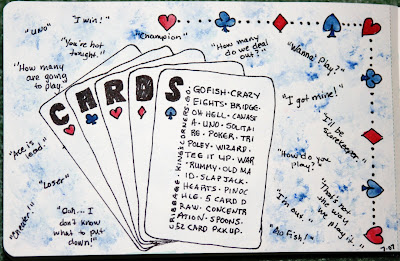 "I win!"
"UNO"
"You're hot
tonight."
"Champion"
"How many
do we deal
out?"
"Wanna' Play?"
"How many
are going
to play.
"I got mine!"
CARDS
GO FISH·CRAZY
EIGHTS·BRIDGE·
OH HELL·CANAST
A·UNO·SOLITAI
RE·POKER·TRI
POLEY·WIZARD·
TEE IT UP·WAR
·RUMMY·OLD MA
ID·SLAPJACK·
HEARTS·PINOC
HLE·5 CARD D
RAW·CONCENTR
ATION·SPOONS·
52 CARD PICK UP.
CRIBBAGE·KING'S CORNERS·
"I'll be
scorekeeper."
"Ace is
lead."
"How do you
play?"
"Loser"
"That's not
the way
we play it."
"I'm out."
"Cheater!"
"Ooh... I
don't know
what to put
down!"
"Go Fish!
7.07